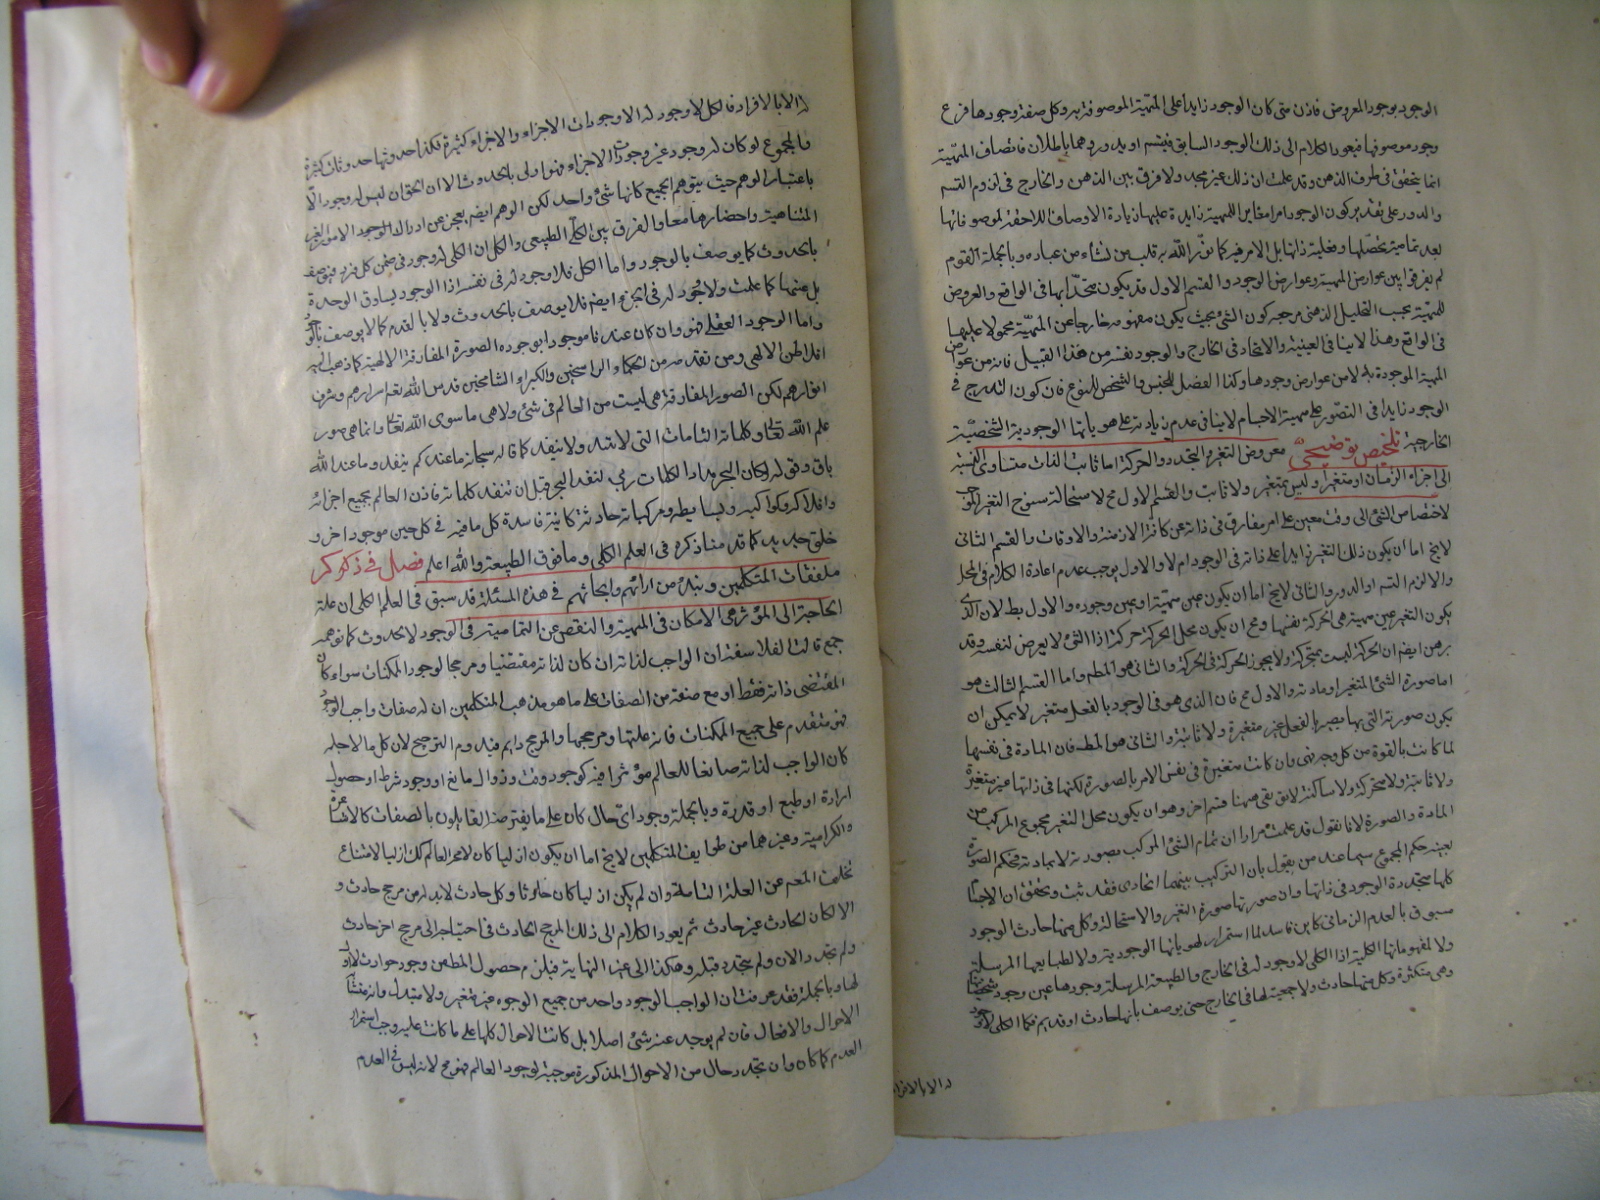 الوجود بوجود المعروض فاذن متى كان الوجود زايدا على المهية الموصوفة به وكل صفة وجودها فرع
وجود موصوفها فيعود الكلام الى ذلك الوجود السابق فيتسم او يدور وهما باطلان فاتصاف المهية
انما يتحقق فى ظرف الذهن وقد علمت ان ذلك غير مجد ولا فرق بين الذهن والخارج فى لزوم التسم
والدور على تقدير كون الوجود امرا مغايرا للمهية زايدة عليها زيادة الاوصاف اللاحقة لموصوفاتها
بعد تمامية تحصلها وفعلية ذاتها بل الامر فيه كما نور الله به قلب من نشاء من عباده وبالجملة القوم
لم يفرقوا بين عوارض المهية وعوارض الوجود والقسم الاول قد يكون متحدا بها فى الواقع والعروض
للمهية بحسب التحليل الذهنى مرجعه كون الشئ بحيث يكون مفهومه خارجا عن المهية محمولا عليها
فى الواقع وهذا لا ينافى العينية والاتحاد فى الخارج والوجود نفسه من هذا القبيل فانه من عوارض
المهية الموجودة به لا من عوارض وجودها وكذا الفصل للجنس والشخص للنوع فان كون التدرج فى
الوجود زايدا فى التصور على مهية الاجسام لا ينافى عدم زيادته على هوياتها الوجودية الشخصية
الخارجية تلخيص توضيحى معروض التغير والتجدد والحركة اما ثابت الذات متساوى النسبة
الى اجزاء الزمان او متغير او ليس بمتغير ولا ثابت والقسم الاول مح لاستحالة سنوح التغير الموجب
لاختصاص الشئ الى وقت معين على امر مفارق فى ذاته عن كافة الازمنة والاوقات والقسم الثانى
لايخ اما ان يكون ذلك التغير زايدا على ذاته فى الوجود ام لا والاول يوجب عدم اعادة الكلام فى المحل
والا لزم التسم او الدور والثانى لايخ اما ان يكون عين مهيته او عين وجوده والاول بط لان الذى
يكون التغير عين مهيته هى الحركة نفسها ومح ان يكون محل الحركة حركة اذ الشئ لا يعرض لنفسه وقد
برهن ايضا ان الحركة ليست بمتحركة ولا يجوز الحركة فى الحركة والثانى هو المطم واما القسم الثالث هو
اما صورة الشئ المتغير او مادته والاول مح فان الذى هو فى الوجود بالفعل متغير لا يمكن ان
يكون صورته التى بها يصير بالفعل غير متغيرة ولا ثابتة والثانى هو المطم فان المادة فى نفسها
لما كانت بالقوة من كل وجه فهى وان كانت متغيرة فى نفس الامر بالصورة لكنها فى ذاتها غير متغيرة
ولا ثابتة ولا متحركة ولا ساكنة لايق بقى ههنا قسم اخر وهو ان يكون محل التغير مجموع المركب من
المادة والصورة لانا نقول قد علمت مرارا ان تمام الشئ المركب بصورته لا بمادته فحكم الصورة
بعينه حكم المجموع سيما عند من يقول بان التركيب بينهما اتحادى فقد ثبت وتحقق ان الاجسام
كلها متجددة الوجود فى ذاتها وان صورتها صورة التغير والاستحالة وكل منها حادث الوجود
مسبوق بالعدم الزمانى كاين فاسد لا استمرار لهوياتها الوجودية ولا لطبايعها المرسلة
ولا لمفهوماتها الكلية اذ الكلى لا وجود له فى الخارج والطبيعة المرسلة وجودها عين وجود شخصياتها
وهى متكثرة وكل منها حادث ولا جمعية لها فى الخارج حتى يوصف بانها حادث او قديم فكما الكلى لا وجود
له الا بالافراد
له الا بالافراد فالكل لا وجود له الا وجودات الاجزاء والاجزاء كثيرة فكذا حدوثها حدوثات كثيرة
والمجموع لو كان له وجود غير وجودات الاجزاء فهو اولى بالحدوث الا ان الحق ان ليس له وجود الا
باعتبار الوهم حيث يتوهم الجميع كانها شئ واحد لكن الوهم ايضا يعجز عن ادراك الوجود الامور الغير
المتناهية واحضارها معا والفرق بين الكلى الطبيعى والكل ان الكلى له وجود فى ضمن كل فرد فيوصف
بالحدوث كما يوصف بالوجود واما الكل فلا وجود له فى نفسه اذ الوجود يساوق الوحدة
بل عينها كما علمت ولا وجود له فى الجزء ايضا فلا يوصف بالحدوث ولا بالقدم كما لا يوصف بالوجود
واما الوجود العقلى فهو وان كان عندنا موجودا بوجوده الصورة المفارقة الالهية كما ذهب اليه
افلاطن الالهى ومن تقدمه من الحكماء الراسخين والكبراء الشامخين قدس الله نعم اسرارهم وشرف
انوارهم لكن الصور المفارقة هى ليست من العالم فى شئ ولا هى ما سوى الله تعالى وانما هى صور
علم الله تعالى وكلماته التامات التى لا تبيد ولا ينفد كما قال سبحانه ما عندكم ينفد وما عند الله
باق وقوله لو كان البحر مدادا لكلمات ربى لنفد البحر قبل ان تنفد كلماته فاذن العالم بجميع اجزائه
وافلاكه وكواكبه وبسايطه ومركباته حادثة كاينة فاسدة كل ما فيه فى كل حين موجود اخر و
خلق جديد كما قدمنا ذكره فى العلم الكلى وما فوق الطبيعة والله اعلم فصل فى ذكر
ملفقات المتكلمين ونبذ من ارائهم وابحاثهم فى هذه المسئلة قد سبق فى العلم الكلى ان علة
الحاجة الى المؤثر هى الامكان فى المهية والنقص عن التمامية فى الوجود لا الحدوث كما توهمه
جمع قالت الفلاسفة ان الواجب لذاته ان كان لذاته مقتضيا ومرجحا لوجود الممكنات سواء كان
المقتضى ذاته فقط او مع صفة من الصفات على ما هو مذهب المتكلمين ان له صفات واجب الوجود
فهو متقدم على جميع الممكنات فانه علتها ومرجحها والمرجح دايم فيدوم الترجيح لان كل ما لاجله
كان الواجب لذاته صانعا للعالم مؤثرا فيه كوجود وقت وزوال مانع او وجود شرط او حصول
ارادة او طبع او قدرة وبالجملة وجود اى حال كان على ما يفترضه القايلون بالصفات كالاشاعرة
والكرامية وغيرهما من طوايف المتكلمين لايخ اما ان يكون ازليا كان لامر العالم كك ازليا لامتناع
تخلف المعم عن العلة التامة وان لم يكن ازليا كان حادثا وكل حادث لابد له من مرجح حادث و
الا لكان الحادث غير حادث ثم يعود الكلام الى ذلك المرجح الحادث فى احتياجه الى مرجح اخر حادث
ولم يتجدد الان ولم يتجدد قبله وهكذا الى غير النهاية فيلزم حصول المطم من وجود حوادث لا اول
لها وبالجملة فقد عرفت ان الواجب الوجود واحد من جميع الوجوه غير متغير ولا متبدل وانه متشابه
الاحوال والافعال فان لم يوجد عنه شئ اصلا بل كانت الاحوال كلها على ما كانت عليه وجب استمرار
العدم كما كان وان تجدد حال من الاحوال المذكورة موجبة لوجود العالم فهو مح لانه ليس فى العدم